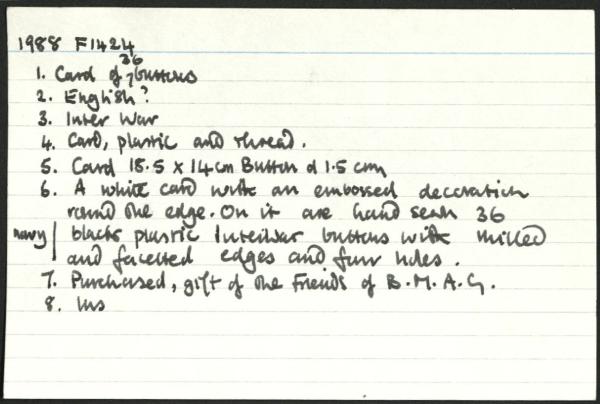 1988 F1424
36
1. Card of buttons
2. English?
3. Inter War
4. Card, plastic and thread.
5. Card 18.5 x 14cm Button d 1.5 cm
6. A white card with an embossed decoration
round the edge. On it are hand sewn 36
navy | black plastic Interwar buttons with milled
and facetted edges and four holes.
7. Purchased, gift of the Friends of B.M.A.G.
8.